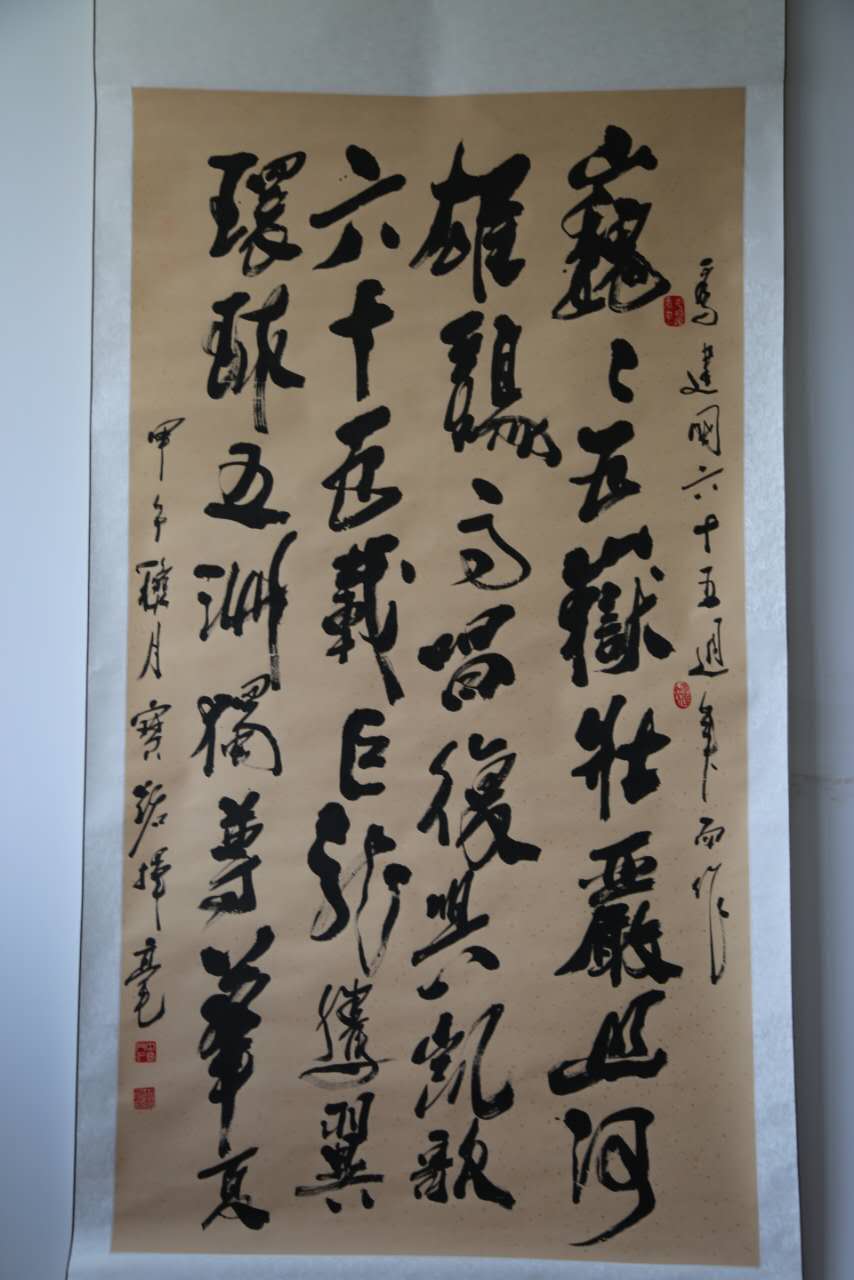 為建國六十五週年而作
巍々五嶽壯嚴山河
雄鷄高唱復興凱歌
六十五載巨龍騰翼
環球五洲獨尊華夏
甲午月寶揮毫